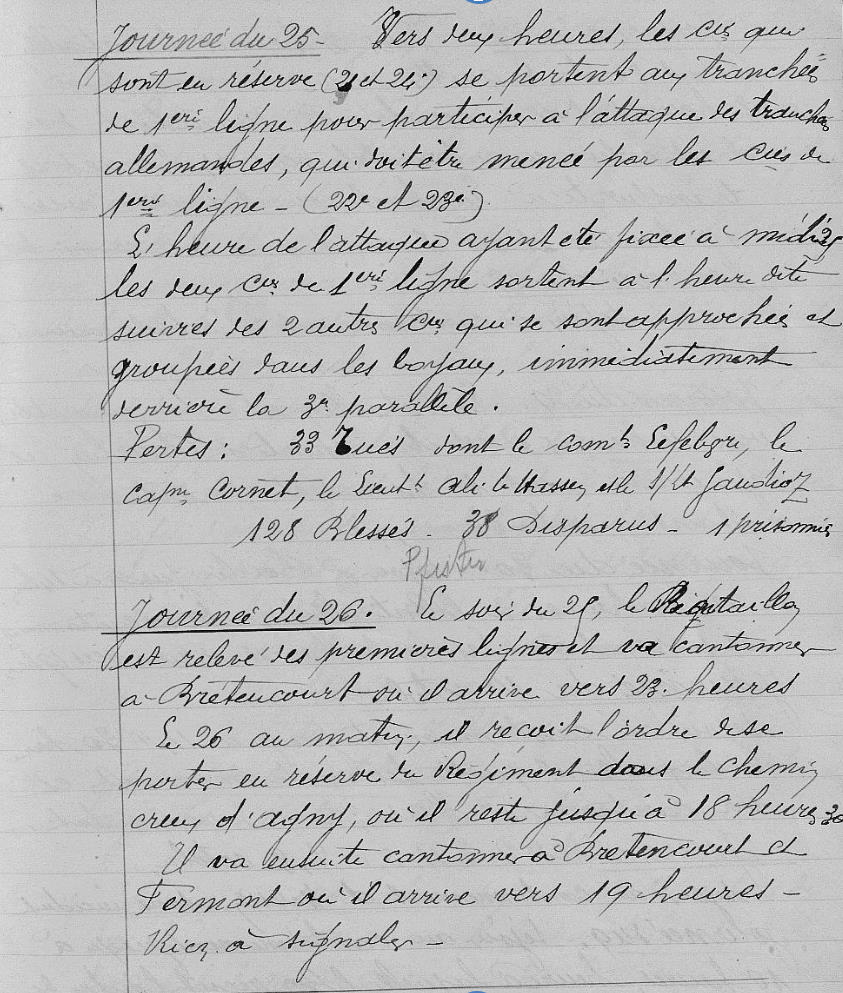 Journeé du 25 - Vers deux heures, les Cies qui
sont en réserve (21 et 24e) se portent aux tranchées
de 1ère ligne pour participer à l'attaque des tranchées
allemandes, qui doit être menée par les Cies de
1ère ligne - (22e et 23e)
L'heure de l'attaque ayant été fixée à midi 25
les deux Cies de 1ère ligne sortent à l'heure dite
suivies des 2 autres Cies qui se sont approchées et
groupées dans les boyaux, immédiatement
derrière la 3e parallèle.
Pertes : 33 Tués dont le comt Lefebvre, le
capne Cornet, le Lieutt Ali et le S/Lt Gaudioz
128 Blessés - 38 Disparus - 1 prisonnier
Pfister
Journeé du 26. Le soir du 25, le Bataillon
est relevé des premières lignes et va cantonner
à Brétencourt où il arrive vers 23 heures
Le 26 au matin, il reçoit l'ordre de se
porter en réserve du Régiment dans le chemin
creux d'Agny, où il reste jusqu'à 18 heures 30
Il va ensuite cantonner à Bretencourt et
Fermont où il arrive vers 19 heures -
Rien à signaler -